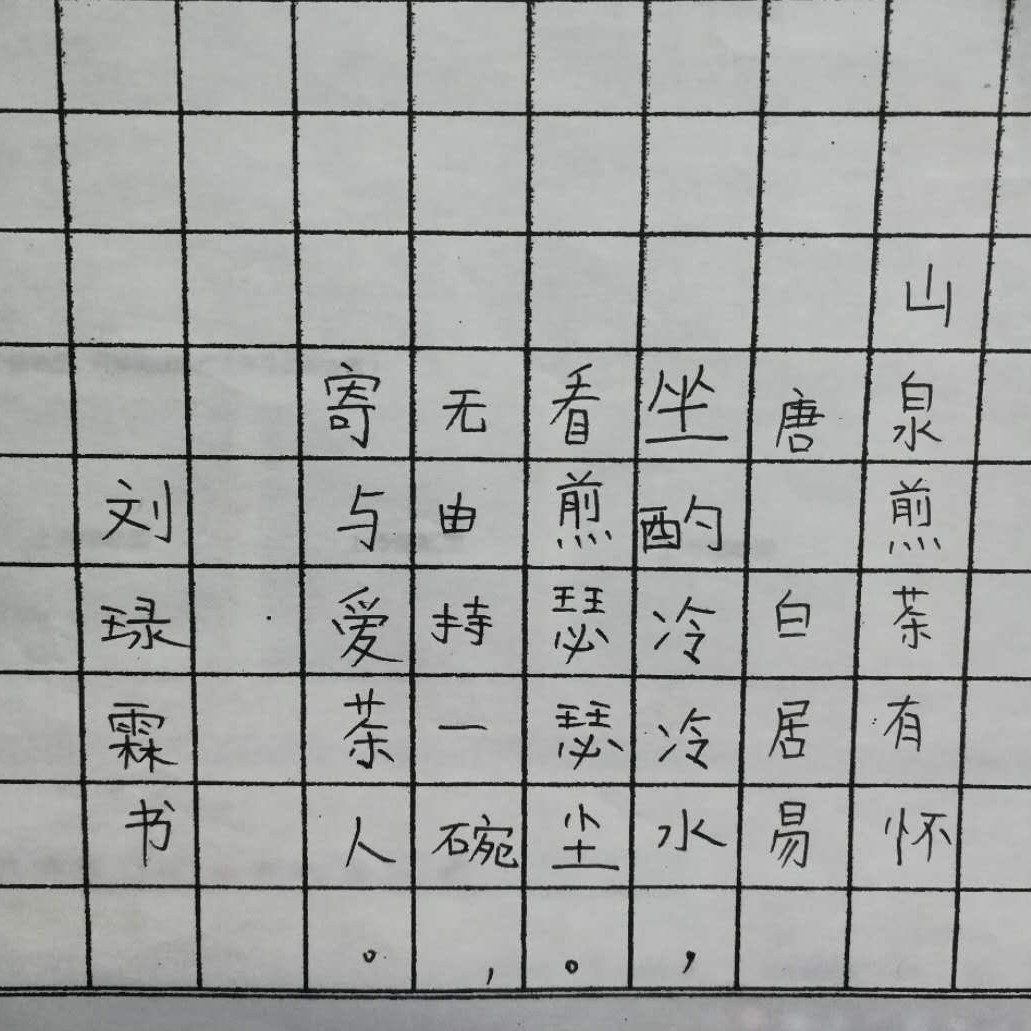 山泉煎茶有怀
唐 白居易
坐酌冷冷水，
看煎瑟瑟尘。
无由持一碗，
寄与爱茶人。
刘琭霖书